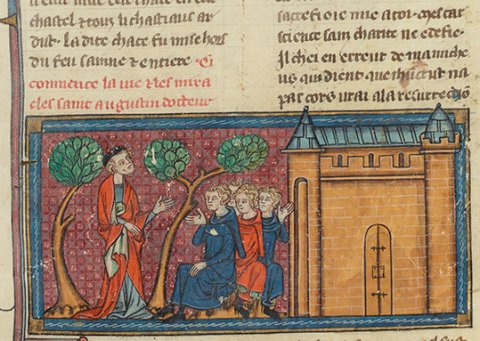 chastel ⁊ touz li chastiaus ar
dist. La dite chace fu mise hors
du feu sainne ⁊ entiere. Ci
commence la vie ⁊ les mira
cles saint augustin docteur
science sanz charite ne edefie.
Il chei en erreur de maniche
us qui dient que ihucrist na
pas cors vrai a la resurrectiō